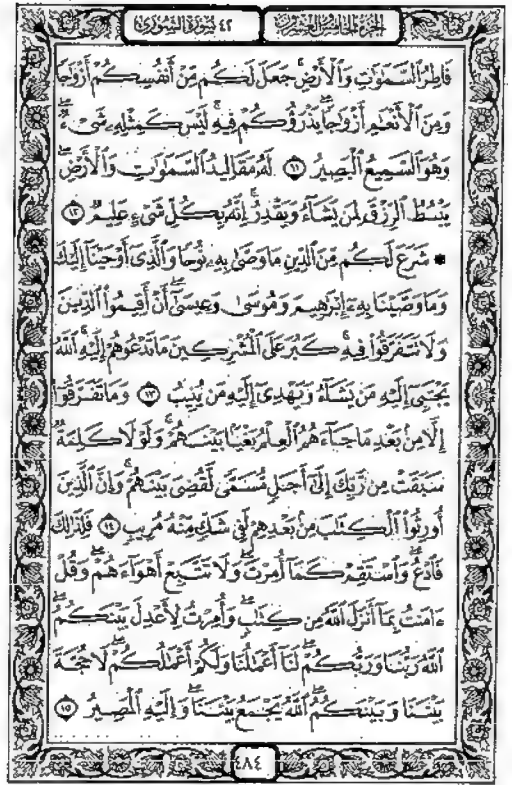 الجزء الخامس والعشرون
٤٢ سورة الشورى
فَاطِرُ السَّمَٰوَٰتِ وَالْأَرْضِ ۚ جَعَلَ لَكُم مِّنْ أَنفُسِكُمْ أَزْوَٰجًا
وَمِنَ الْأَنْعَٰمِ أَزْوَٰجًا ۖ يَذْرَؤُكُمْ فِيهِ ۚ لَيْسَ كَمِثْلِهِۦ شَىْءٌ ۖ
وَهُوَ السَّمِيعُ الْبَصِيرُ ١١ لَهُۥ مَقَالِيدُ السَّمَٰوَٰتِ وَالْأَرْضِ ۖ
يَبْسُطُ الرِّزْقَ لِمَن يَشَآءُ وَيَقْدِرُ ۚ إِنَّهُۥ بِكُلِّ شَىْءٍ عَلِيمٌ ١٢
۞ شَرَعَ لَكُم مِّنَ الدِّينِ مَا وَصَّىٰ بِهِۦ نُوحًا وَالَّذِىٓ أَوْحَيْنَآ إِلَيْكَ
وَمَا وَصَّيْنَا بِهِۦٓ إِبْرَٰهِيمَ وَمُوسَىٰ وَعِيسَىٰٓ ۖ أَنْ أَقِيمُوا۟ الدِّينَ
وَلَا تَتَفَرَّقُوا۟ فِيهِ ۚ كَبُرَ عَلَى الْمُشْرِكِينَ مَا تَدْعُوهُمْ إِلَيْهِ ۚ اللَّهُ
يَجْتَبِىٓ إِلَيْهِ مَن يَشَآءُ وَيَهْدِىٓ إِلَيْهِ مَن يُنِيبُ ١٣ وَمَا تَفَرَّقُوٓا۟
إِلَّا مِنۢ بَعْدِ مَا جَآءَهُمُ الْعِلْمُ بَغْيًۢا بَيْنَهُمْ ۚ وَلَوْلَا كَلِمَةٌ
سَبَقَتْ مِن رَّبِّكَ إِلَىٰٓ أَجَلٍ مُّسَمًّى لَّقُضِىَ بَيْنَهُمْ ۚ وَإِنَّ الَّذِينَ
أُورِثُوا۟ الْكِتَٰبَ مِنۢ بَعْدِهِمْ لَفِى شَكٍّ مِّنْهُ مُرِيبٍ ١٤ فَلِذَٰلِكَ
فَادْعُ ۖ وَاسْتَقِمْ كَمَآ أُمِرْتَ ۖ وَلَا تَتَّبِعْ أَهْوَآءَهُمْ ۖ وَقُلْ
ءَامَنتُ بِمَآ أَنزَلَ اللَّهُ مِن كِتَٰبٍ ۖ وَأُمِرْتُ لِأَعْدِلَ بَيْنَكُمُ ۖ
اللَّهُ رَبُّنَا وَرَبُّكُمْ ۖ لَنَآ أَعْمَٰلُنَا وَلَكُمْ أَعْمَٰلُكُمْ ۖ لَا حُجَّةَ
بَيْنَنَا وَبَيْنَكُمُ ۖ اللَّهُ يَجْمَعُ بَيْنَنَا ۖ وَإِلَيْهِ الْمَصِيرُ ١٥
٤٨٤